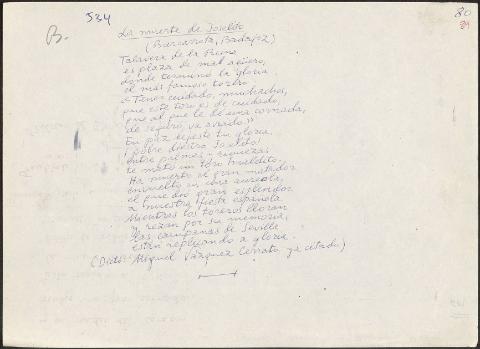 B.
534
80
84
La muerte de Joselito
(Barcarrota, Badajoz)
Talavera de la Reina
es plaza de mal agüero,
donde terminó la gloria
el más famoso torero.
"Tener cuidado, muchachos,
que este toro es de cuidado,
que al que le dé una cornada,
de seguro, va aviado."
En paz reposa tu gloria
¡pobre diestro Joselito!
Entre palmas y riquezas
te mató un toro maldito.
Ha muerto el gran matador
envuelto en una aureola,
el que dió gran esplendor
a nuestra fiesta española
Mientras los toreros lloran
y rezan por su memoria,
las campanas de Sevilla
están repicando a gloria.
(Dictó: Miguel Vázquez Cerrato, ya citado)